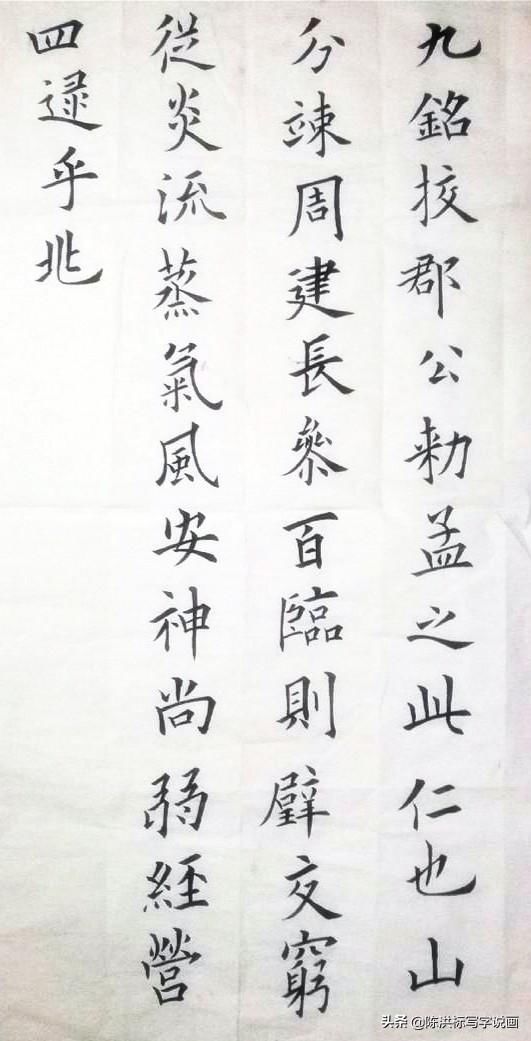 九銘挍郡公勑孟之此仁也山
分竦周建長叅百臨則壁交窮
從炎流蒸氣風安神尚弱經營
四逯乎兆
头条 @陈洪标写字说画